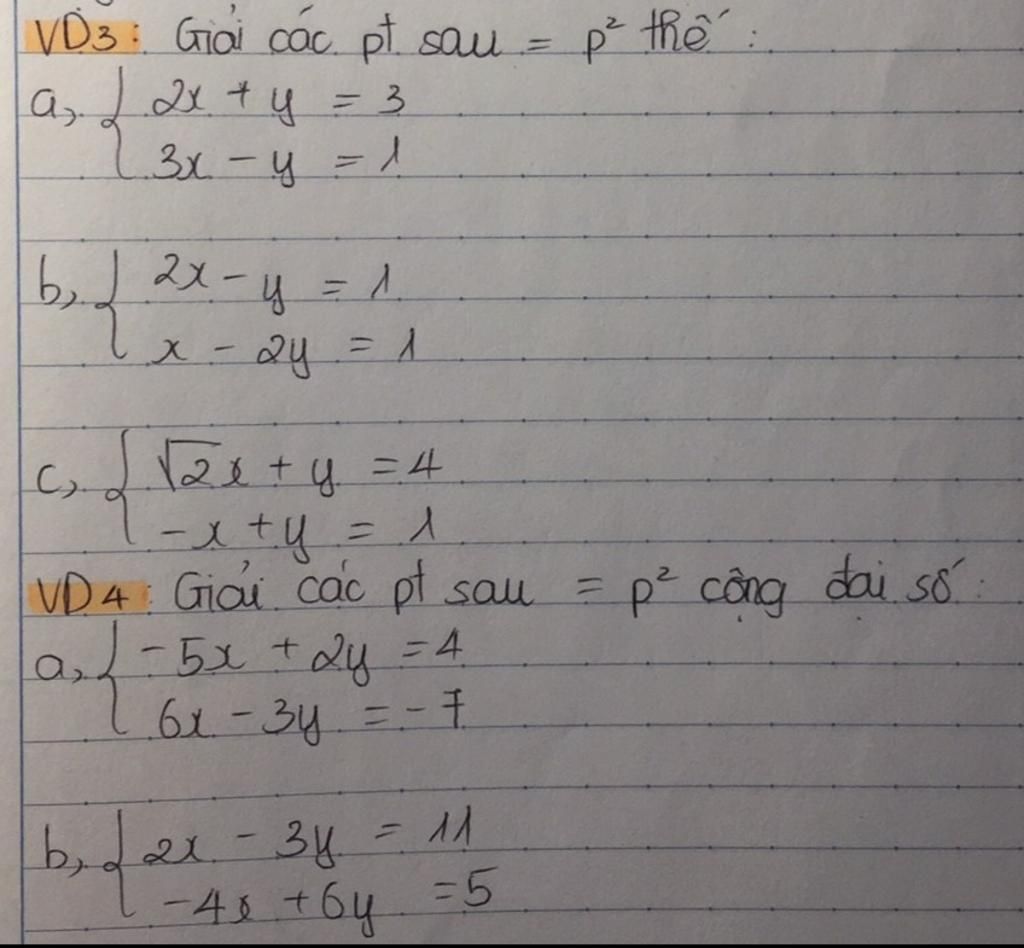 VD3: Giải các pt sau = p² thế :
a, { 2x + y = 3
3x - y = 1
b, { 2x - y = 1
x - 2y = 1
c, { √2x + y = 4
-x + y = 1
VD4: Giải các pt sau = p² cộng đại số :
a, { -5x + 2y = 4
6x - 3y = -7
b, { 2x - 3y = 11
-4x + 6y = 5